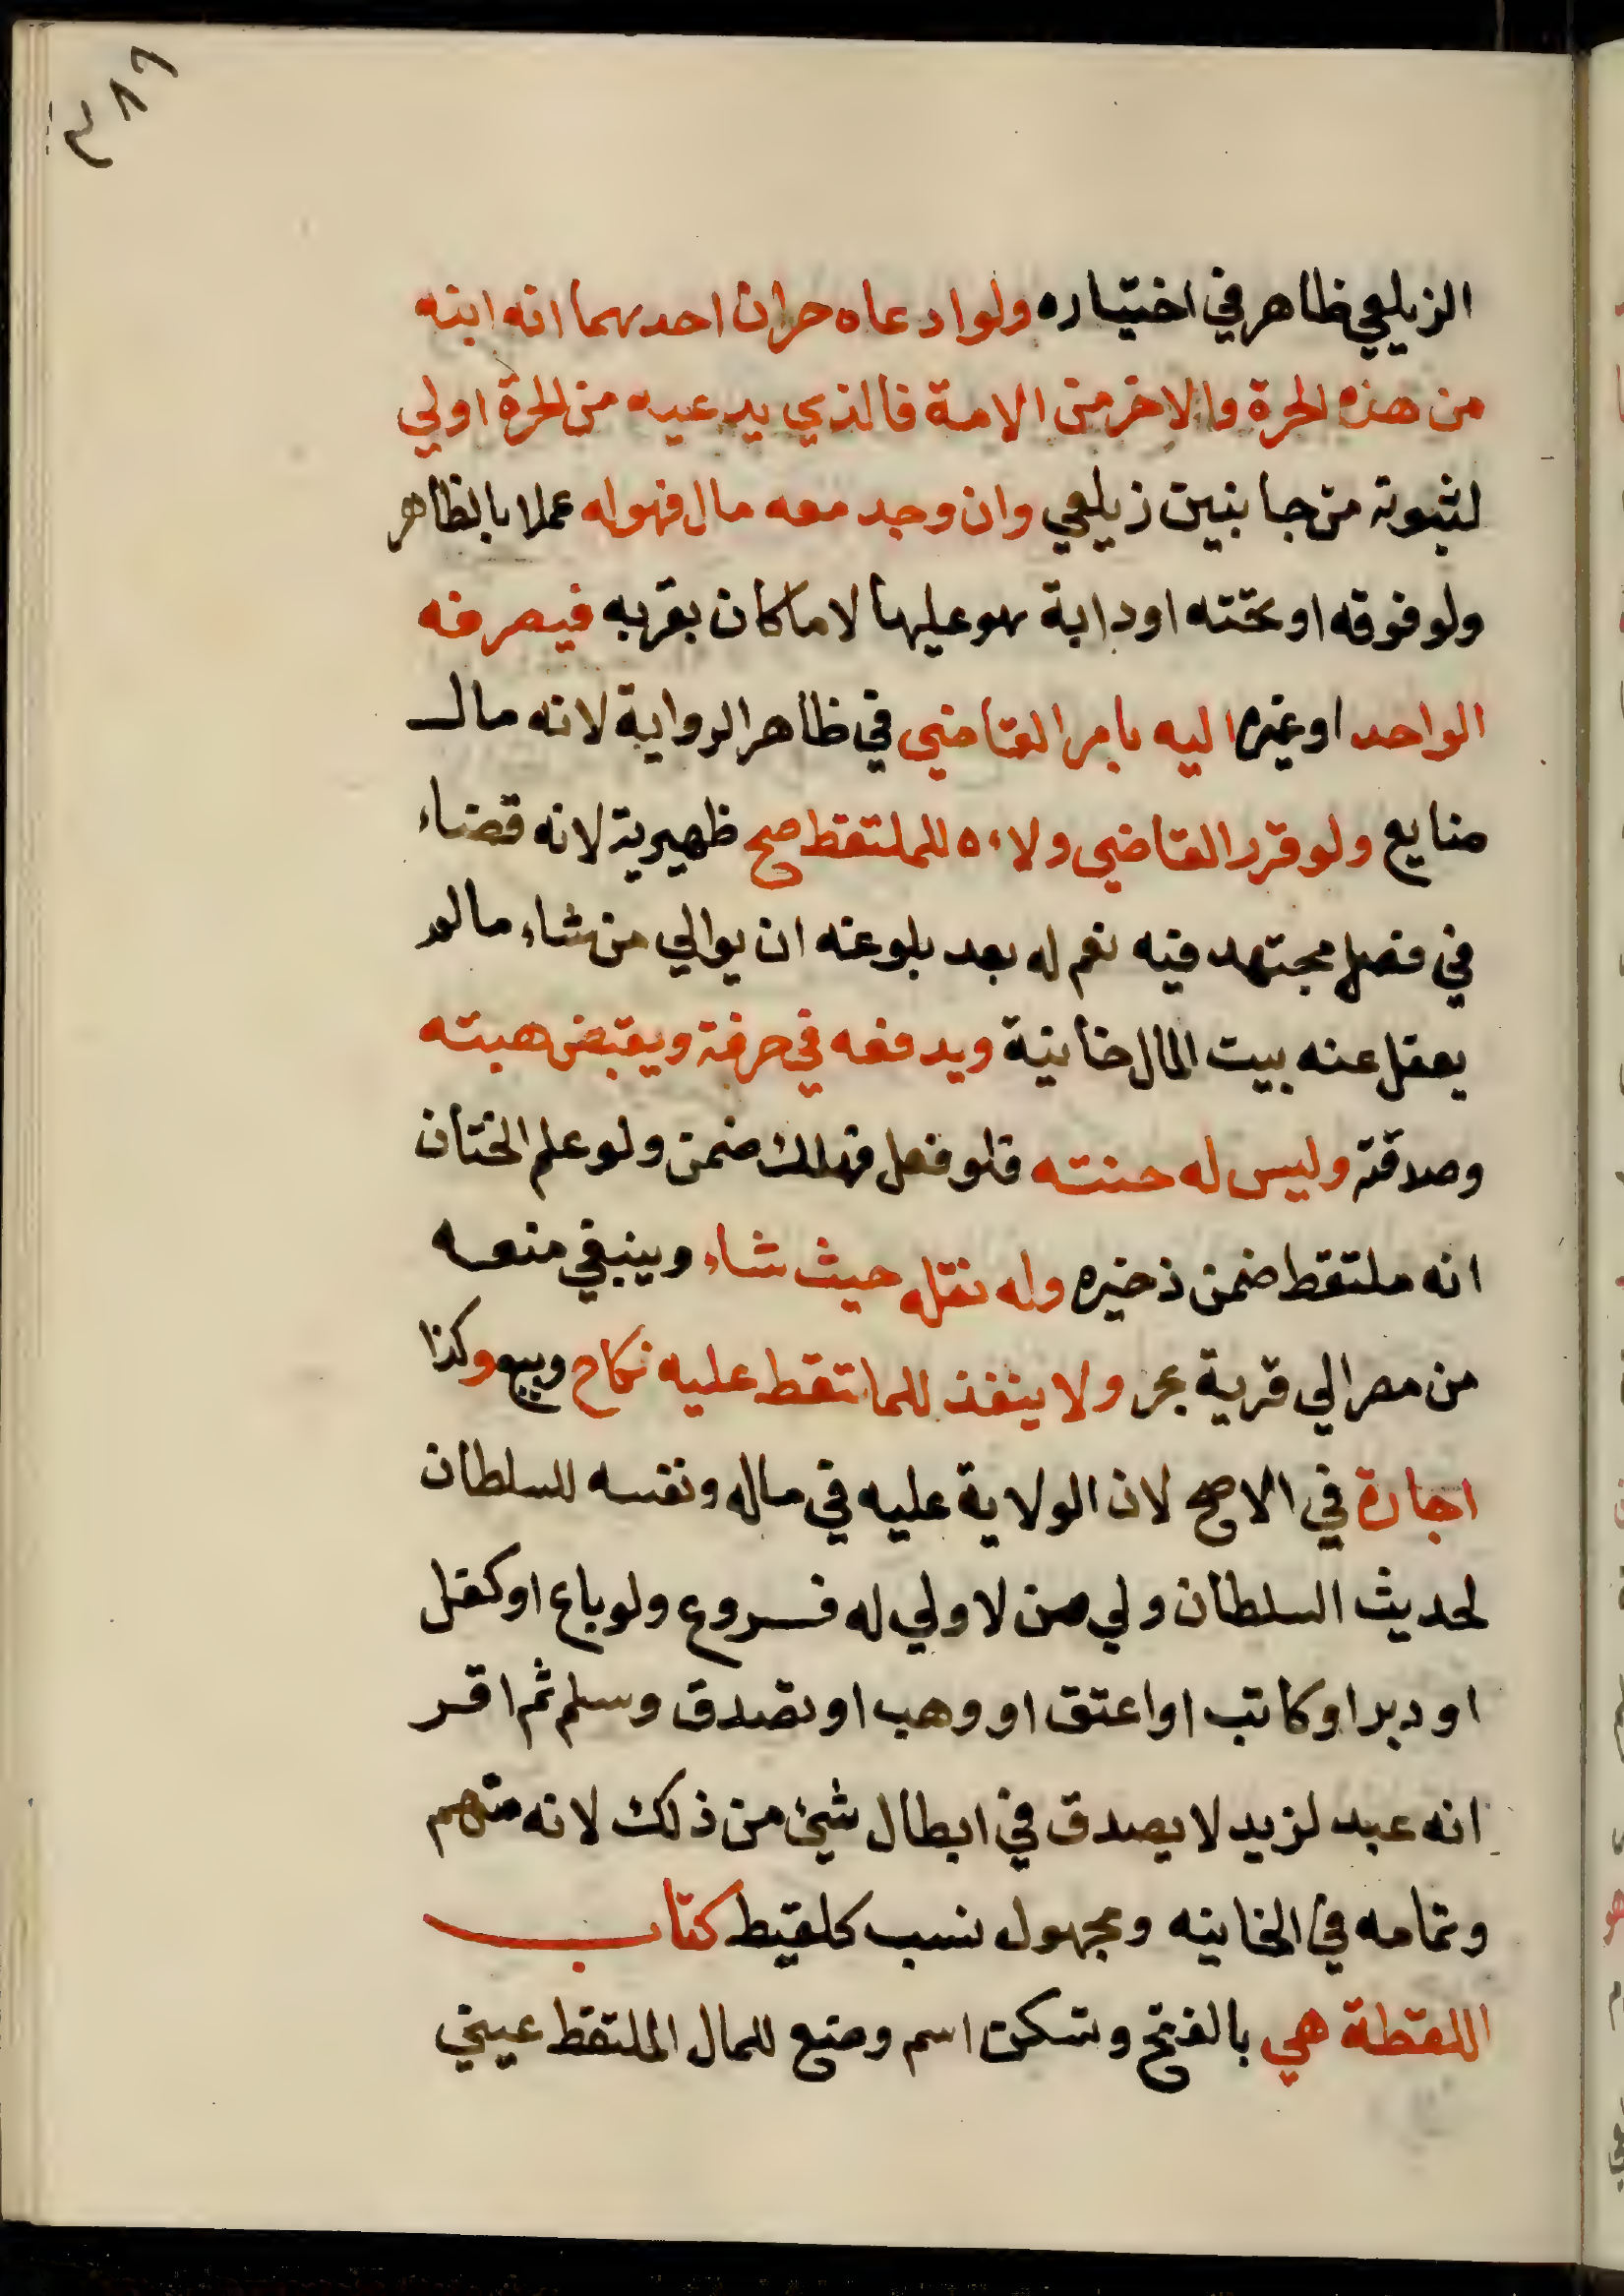 ٣٨٩
الزيلعي ظاهر في اختياره ولو ادعاه حران احدهما انه ابنه
من هذه الحرة والاخر من الامة فالذي يدعيه من الحرة اولي
لثبوته من جانبين زيلعي وان وجد معه مال فهو له عملا بالظاهر
ولو فوقه او تحته او دابة هو عليها لا ما كان بقربه فيصرفه
الواحد او غيره اليه بامر القاضي في ظاهر الرواية لانه مال
ضايع ولو قرر القاضي ولاءه للملتقط صح ظهيرية لانه قضاء
في فصل مجتهد فيه نعم له بعد بلوغه ان يوالي من شاء مالم
يعقل عنه بيت المال خانية ويدفعه في حرفة ويقبض هبته
وصدقته وليس له ختنه فلو فعل فهلك ضمن ولو علم الختان
انه ملتقط ضمن ذخيره وله نقله حيث شاء وينبغي منعه
من مصر الي قرية بحر ولا ينفذ للملتقط عليه نكاح وبيع وكذا
اجارة في الاصح لان الولاية عليه في ماله ونفسه للسلطان
لحديث السلطان ولي من لا ولي له فروع ولو باع او كفل
او دبر او كاتب او اعتق او وهب او تصدق وسلم ثم اقر
انه عبد لزيد لا يصدق في ابطال شيئ من ذلك لانه متهم
وتمامه في الخانيه ومجهول نسب كلقيط كتاب
اللقطة هي بالفتح وتسكن اسم وضع للمال الملتقط عيني